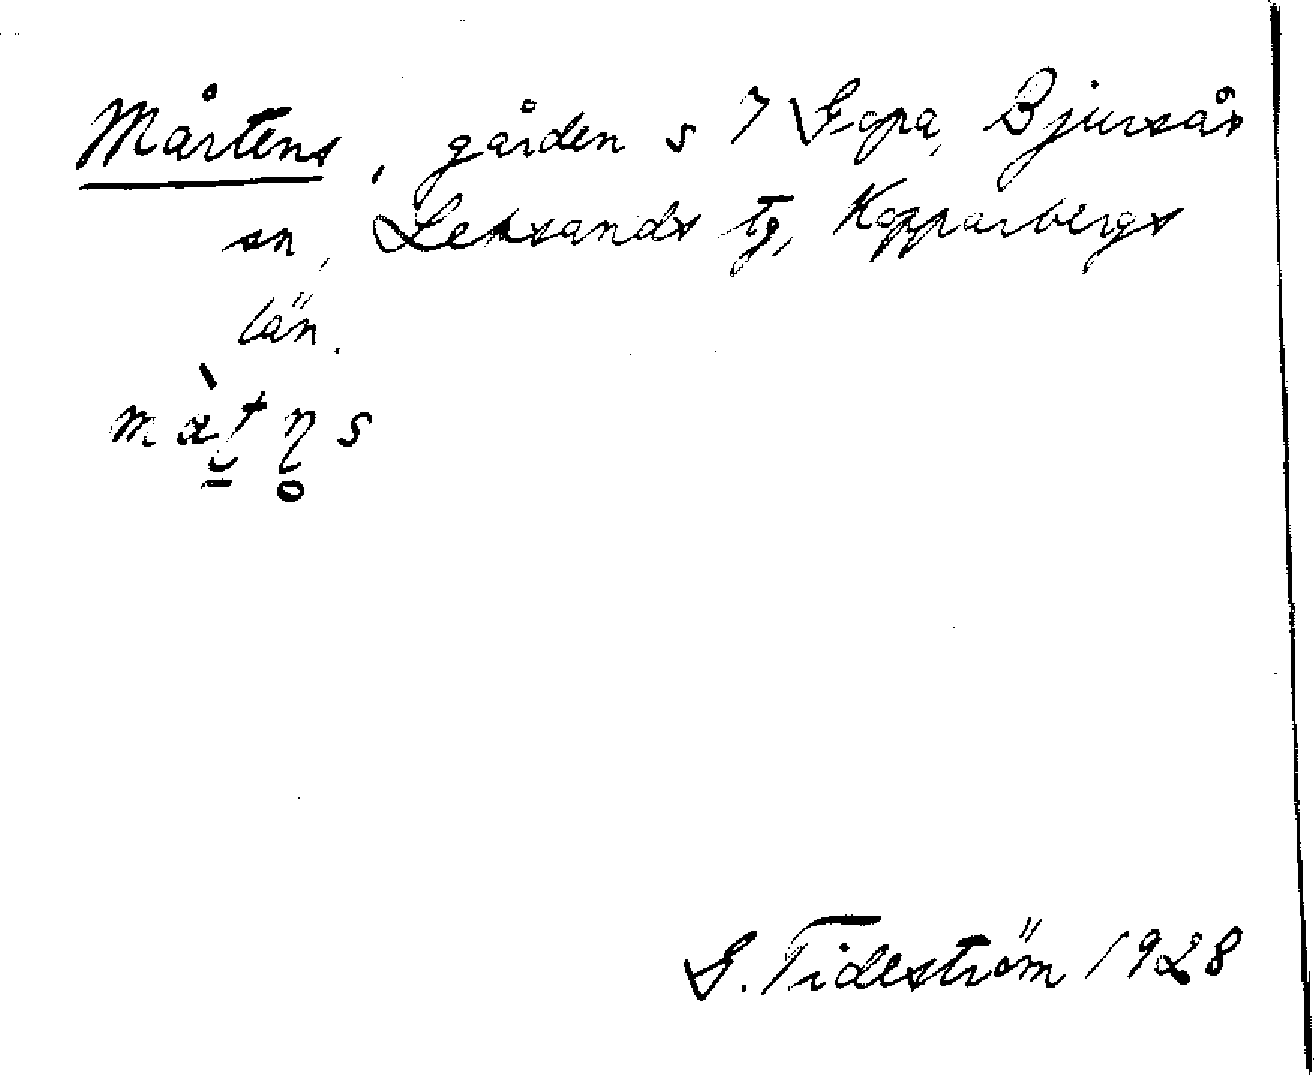 Mårtens, gården s 7 Gopa, Bjursås
sn, Leksands tg, Kopparbergs
län.
G. Tideström 1928